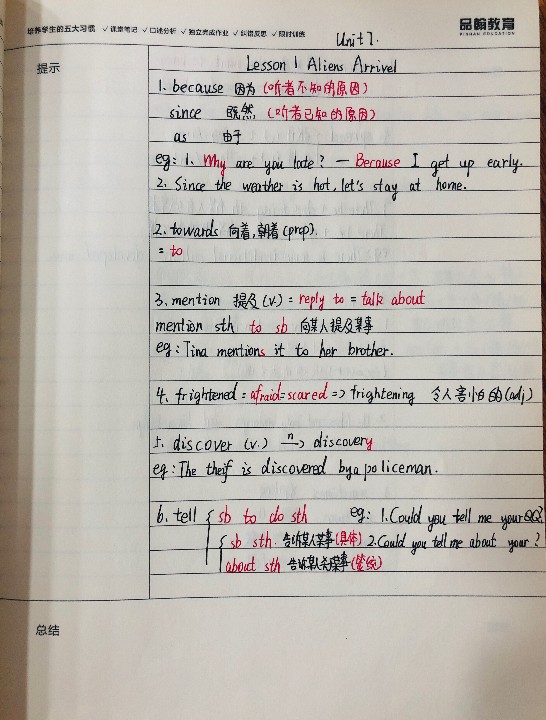 培养学生的五大习惯 √课堂笔记 √口述分析 √独立完成作业 √纠错反思 √限时训练
品翰教育
PINHAN EDUCATION
Unit 7.
提示
Lesson 1 Aliens Arrivel
1. because 因为 (听者不知的原因)
since 既然 (听者已知的原因)
as 由于
eg: 1. Why are you late? — Because I get up early.
2. Since the weather is hot, let's stay at home.
2. towards 向着, 朝着 (prop).
= to
3. mention 提及 (v.) = reply to = talk about
mention sth to sb 向某人提及某事
eg: Tina mentions it to her brother.
4. frightened = afraid = scared => frightening 令人害怕的 (adj)
5. discover (v.) n→ discovery
eg: The theif is discovered by a policeman.
6. tell { sb to do sth eg: 1. Could you tell me your QQ?
{ sb sth. 告诉某人某事 (具体) 2. Could you tell me about your ?
about sth 告诉某人关于某事 (笼统)
总结